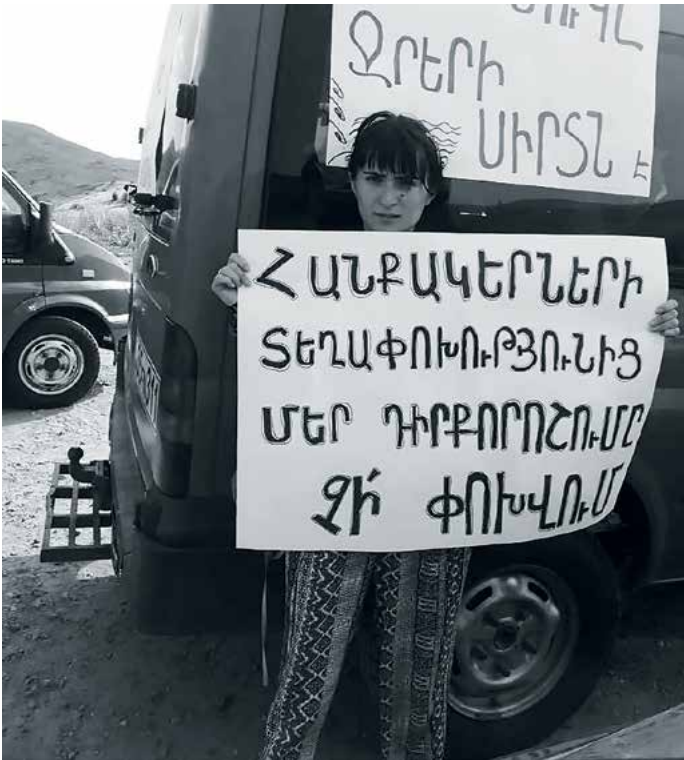 Ջրերի
սիրտն է
Հանքակերների
տեղափոխությունից
մեր դիրքորոշումը
չի՛ փոխվում